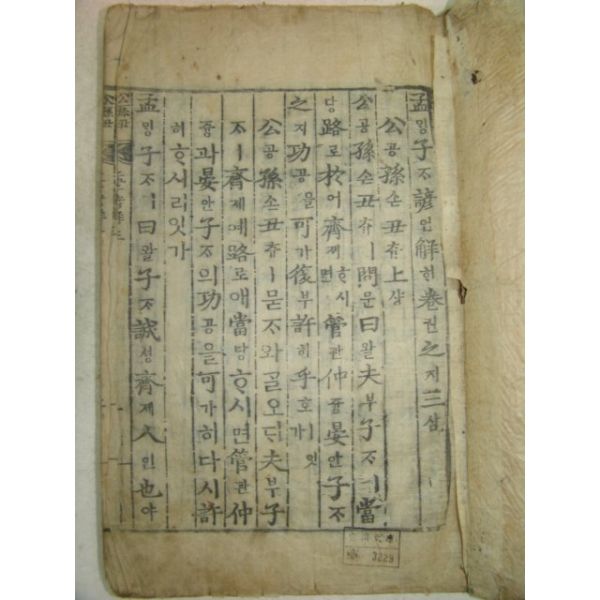 孟밍子ᄌᆞ諺언解ᄒᆡ卷권之지三삼
公공孫손丑츄上샹
公공孫손丑츄ㅣ問문曰왈夫부子ᄌᆞㅣ當
당路로於어齊졔ᄒᆞ시면管관仲듕晏안子ᄌᆞ
之지功공을可가復부許허乎호ㅣ잇가
公공孫손丑츄ㅣ묻ᄌᆞ와ᄀᆞᆯ오ᄃᆡ夫부子
ᄌᆞㅣ齊졔예路로애當당ᄒᆞ시면管관仲
듕과晏안子ᄌᆞ의功공을可가히다시許
허ᄒᆞ시리잇가
孟밍子ᄌᆞㅣ曰왈子ᄌᆞ誠셩齊졔人인也야
3229